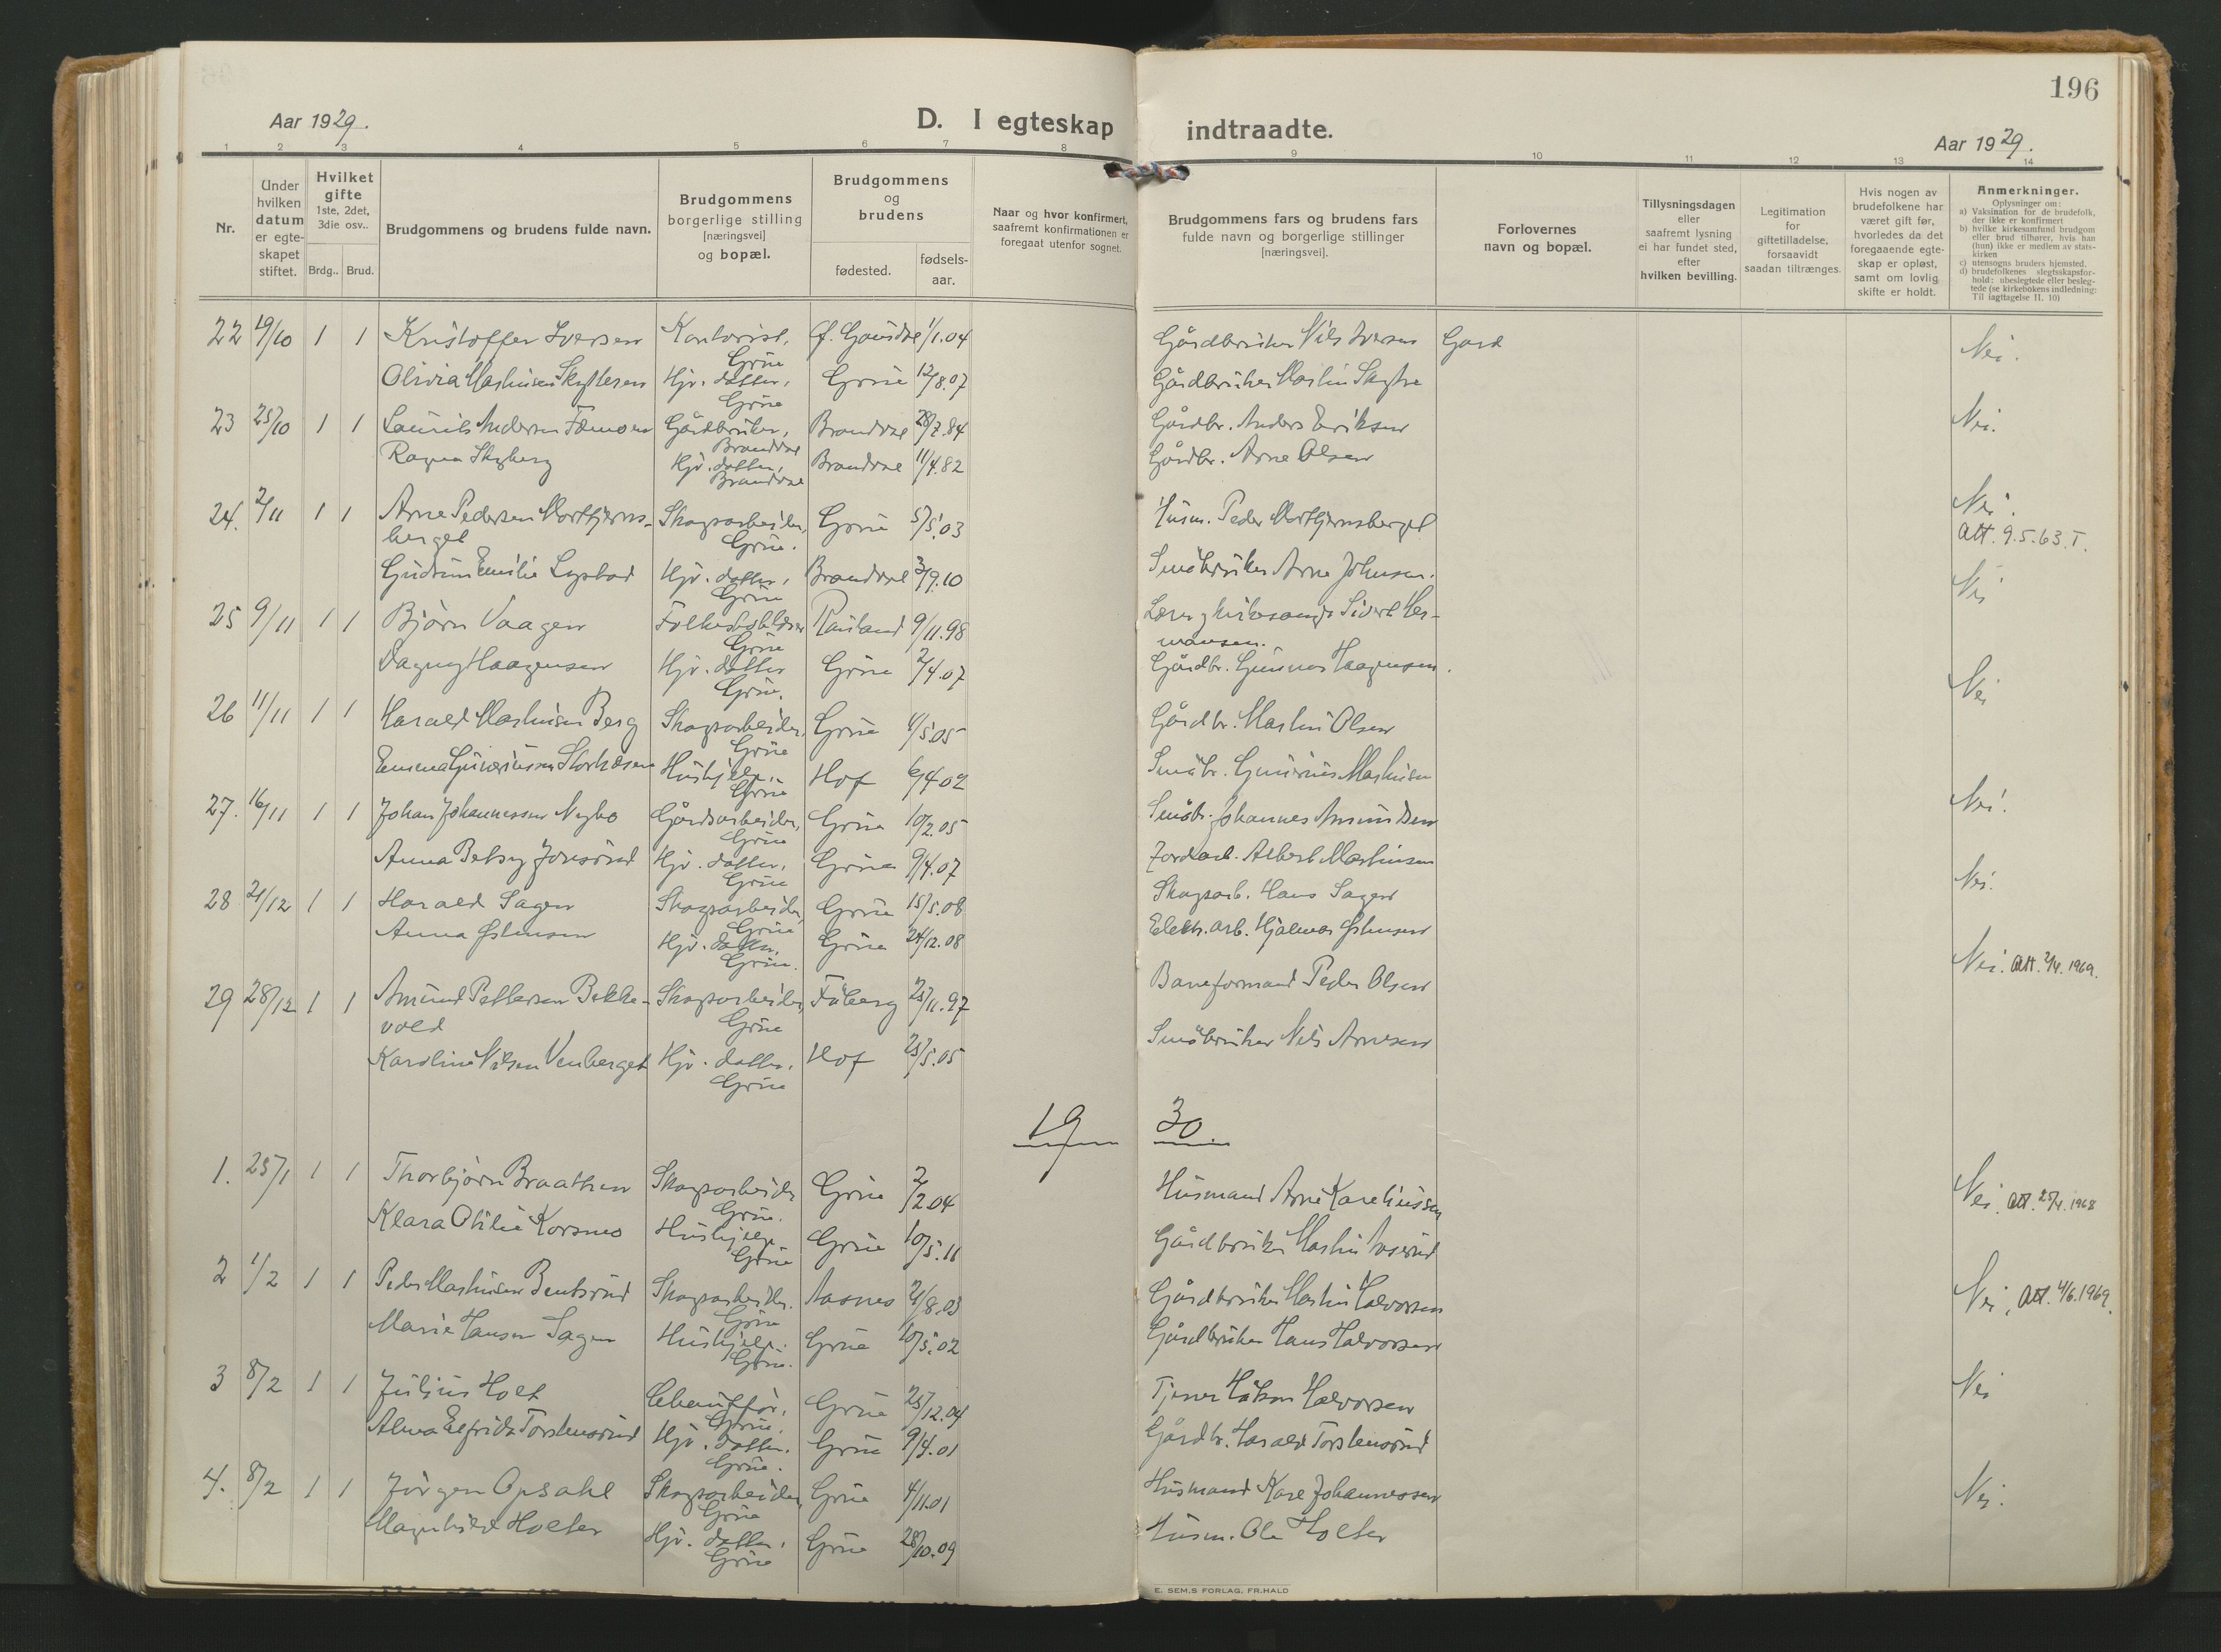 196
Aar 1929.
D. I egteskap indtraadte.
Aar 1929.
1 2 3 4 5 6 7 8 9 10 11 12 13 14
Nr.
Under hvilken datum er egte-skapet stiftet.
Hvilket gifte 1ste, 2det, 3die osv..
Brdg.. Brud.
Brudgommens og brudens fulde navn.
Brudgommens borgerlige stilling [næringsvei] og bopæl.
Brudgommens og brudens
fødested. fødsels-aar.
Naar og hvor konfirmert, saafremt konfirmationen er foregaat utenfor sognet.
Brudgommens fars og brudens fars fulde navn og borgerlige stillinger [næringsvei].
Forlovernes navn og bopæl.
Tillysningsdagen eller saafremt lysning ei har fundet sted, efter hvilken bevilling.
Legitimation for giftetilladelse, forsaavidt saadan tiltrænges.
Hvis nogen av brudefolkene har været gift før, hvorledes da det foregaaende egte-skap er opløst, samt om lovlig skifte er holdt.
Anmerkninger.
Oplysninger om:
a) Vaksination for de brudefolk, der ikke er konfirmert
b) hvilke kirkesamfund brudgom eller brud tilhører, hvis han (hun) ikke er medlem av stats-kirken
c) utensogns bruders hjemsted.
d) brudefolkenes slegtsskapsfor-hold: ubeslegtede eller besleg-tede (se kirkebokens indledning: Til iagttagelse II. 10)
22 19/10 1 1 Kristoffer Iversen Kontorist, Grue 1/1.04 Gårdbruker Nils Iversen Gard Nei.
Olivia Martinsen Skyttersen Hjv. datter, Grue Grue 12/8.07 Gårdbruker Martin
23 25/10 1 1 Laurits Andersen Gårdbruker, Brandval Brandval 28/7.84 Gårdbr. Anders Eriksen Nei.
Ragna Skyberg Hjv. datter, Brandval Brandval 11/4.82 Gårdbr. Arne Olsen
24. 2/11 1 1 Arne Pedersen Morttjerns-
berget Skogsarbeider, Grue. Grue 5/5.03 Husm. Peder Morttjernsberget Nei. Att. 9.5.63. T.
Gudrun Emilie Lystad Hjv. datter, Grue Brandval 3/9.10 Småbruker Arne Johnsen.
25 9/11 1 1 Bjørn Vaagen Grue Rauland 9/11.98 Lærer og kirkesanger Sivert Her-
mansen. Nei
Dagny Haagensen Hjv. datter Grue. Grue 2/4.07 Gårdbr. Gunnar Haagensen.
26 11/11 1 1 Harald Martinsen Berg Skogsarbeider, Grue Grue 4/5.05 Gårdbr. Martin Olsen Nei
Emma Hushjelp, Grue Hof 6/4.02 Småbr. Martinsen
27. 16/11 1 1 Johan Johannessen Nybo Gårdsarbeider, Grue Grue 10/2.05 Småbr. Johannes Amundsen Nei.
Anna Betsy Jonsrud Hjv. datter, Grue Grue 9/4.07 Jordarb. Albert Martinsen
28 21/12 1 1 Harald Sagen Skogsarbeider, Grue Grue 15/5.08 Skogsarb. Hans Sagen Nei.
Anna Johnsen Hjv. datter, Grue. Grue 24/12.08 Elektr. arb. Hjalmar Johnsen
29 28/12 1 1 Amund Pettersen Bekke-
vold Skogsarbeider, Grue Fåberg 23/11.97 Baneformand Peder Olsen Nei. Att. 2/4. 1969.
Karoline Nilsen Venberget Hjv. datter, Grue Hof 23/5.05 Småbruker Nils Arnesen
19 30.
1. 25/1 1 1 Thorbjørn Braathen Skogsarbeider Grue. Grue 2/2.04 Husmand Arne Kareliussen Nei. Att. 25/4. 1968
Klara Otilie Korsmo Hushjelp Grue Grue 10/5.11 Gårdbruker Martin
2 1/2 1 1 Peder Martinsen Bentsrud Skogsarbeider. Grue Aasnes 21/8.03 Gårdbruker Martin Halvorsen Nei, Att. 4/6.1969.
Marie Hansen Sagen Hushjelp. Grue. Grue 10/5.02 Gårdbruker Hans Halvorsen
3 8/2 1 1 Julius Holt Chauffør, Grue. Grue 23/12.04 Tjener Håkon Halvorsen Nei
Alma Elfrida Torstensrud Hjv. datter. Grue. Grue 9/4.01 Gårdbr. Harald Torstensrud
4. 8/2 1 1 Jörgen Opsahl Skogsarbeider, Grue Grue 4/11.01 Husmand Karl Johannessen Nei.
Magnhild Holter Hjv. datter, Grue Grue 28/10.09 Husm. Ole Holter
E. SEM.S FORLAG, FR.HALD